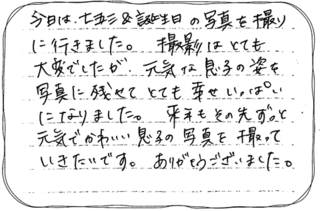 今日は、七五三&誕生日の写真を撮り
に行きました。 撮影はとても
大変でしたが、元気な息子の姿を
写真に残せてとても幸せいっぱい
になりました。 来年もその先ずっと
元気でかわいい息子の写真を撮って
いきたいです。 ありがとうございました。